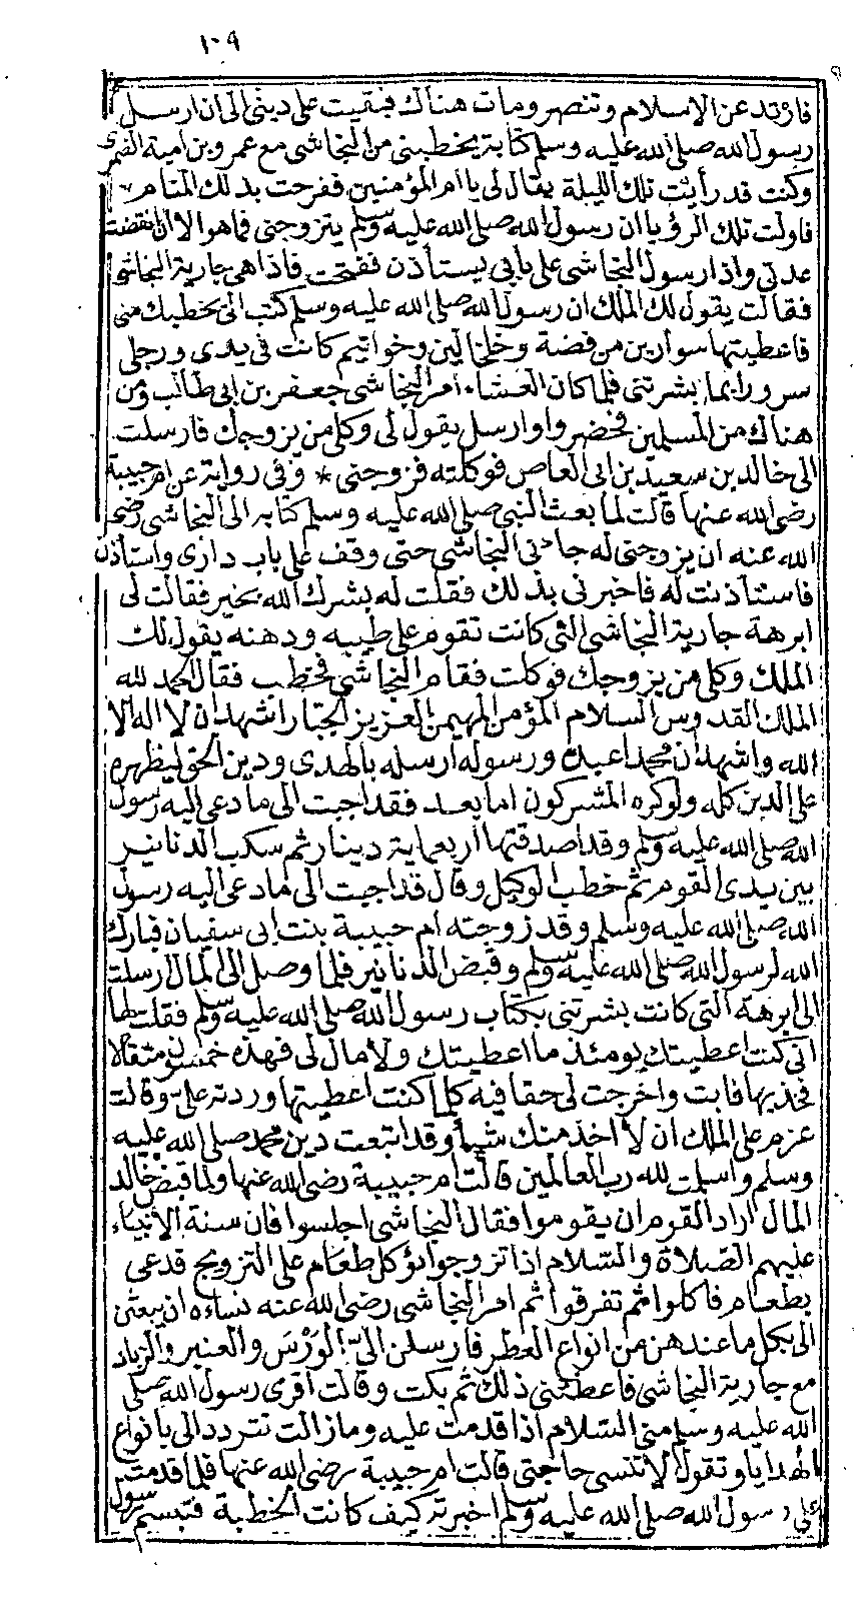 ١٠٩
فارتد عن الاسلام وتنصر ومات هناك فبقيت على دينى الى ان ارسل
رسول الله صلى الله عليه وسلم كتابة يخطبنى من النجاشى مع عمرو بن امية الضمرى
وكنت قد رأيت تلك الليلة يقال لى يا ام المؤمنين ففرحت بذلك المنام
فاولت تلك الرؤيا ان رسول الله صلى الله عليه وسلم يتزوجنى فما هو الا ان انقضت
عدتى واذا رسول النجاشى على بابى يستأذن ففتحت فاذا هى جارية النجاشى
فقالت يقول لك الملك ان رسول الله صلى الله عليه وسلم كتب الى يخطبك منى
فاعطيتها سوارين من فضة وخلخالين وخواتيم كانت فى يدى ورجلى
سرورا بما بشرتنى فلما كان العشاء امر النجاشى جعفر بن ابى طالب ومن
هناك من المسلمين فحضروا وارسل يقول لى وكلى من يزوجك فارسلت
الى خالد بن سعيد بن ابى العاص فوكلته فزوجنى * وفى رواية عن ام حبيبة
رضى الله عنها قالت لما بعث النبى صلى الله عليه وسلم كتابه الى النجاشى رضى
الله عنه ان يزوجنى له جاءنى النجاشى حتى وقف على باب دارى واستأذن
فاستاذنت له فاخبرنى بذلك فقلت له بشرك الله بخير فقالت لى
ابرهة جارية النجاشى التى كانت تقوم على طيبه ودهنه يقول لك
الملك وكلى من يزوجك فوكلت فقام النجاشى فخطب فقال الحمد لله
الملك القدوس السلام المؤمن المهيمن العزيز الجبار اشهد ان لا اله الا
الله واشهد ان محمدا عبده ورسوله ارسله بالهدى ودين الحق ليظهره
على الدين كله ولو كره المشركون اما بعد فقد اجبت الى ما دعى اليه رسول
الله صلى الله عليه وسلم وقد اصدقتها اربعماية دينار ثم سكب الدنانير
بين يدى القوم ثم خطب الوكيل وقال قد اجبت الى ما دعى اليه رسول
الله صلى الله عليه وسلم وقد زوجته ام حبيبة بنت ابى سفيان فبارك
الله لرسول الله صلى الله عليه وسلم وقبض الدنانير فلما وصل الى المال ارسلت
الى ابرهة التى كانت بشرتنى بكتاب رسول الله صلى الله عليه وسلم فقلت لها
انى كنت اعطيتك يومئذ ما اعطيتك ولا مال لى فهذه خمسون مثقالا
فخذيها فابت واخرجت لى حقا فيه كلما كنت اعطيتها وردته على وقالت
عزم على الملك ان لا اخذ منك شيأ وقد اتبعت دين محمد صلى الله عليه
وسلم واسلمت لله رب العالمين قالت ام حبيبة رضى الله عنها ولما قبض خالد
المال اراد القوم ان يقوموا فقال النجاشى اجلسوا فان سنة الانبياء
عليهم الصلاة والسلام اذا تزوجوا يؤكل طعام على التزويج فدعى
بطعام فاكلوا ثم تفرقوا ثم امر النجاشى رضى الله عنه نساءه ان يبعثن
الى بكل ما عندهن من انواع العطر فارسلن الى الورس والعنبر والزباد
مع جارية النجاشى فاعطتنى ذلك ثم بكت وقالت اقرى رسول الله صلى
الله عليه وسلم منى السلام اذا قدمت عليه وما زالت تتردد الى بانواع
الهدايا وتقول لا تنسى حاجتى قالت ام حبيبة رضى الله عنها فلما قدمت
على رسول الله صلى الله عليه وسلم اخبرته كيف كانت الخطبة فتبسم رسول